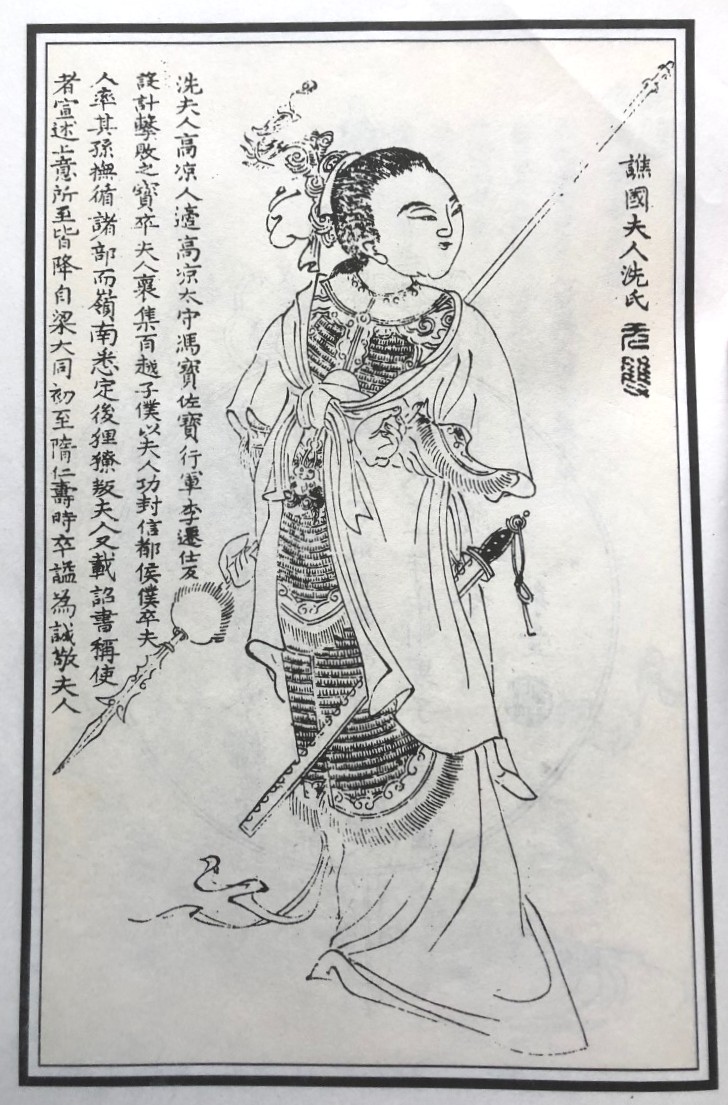 譙國夫人洗氏 无雙
洗夫人高凉人適高凉太守馮寶佐寶行軍李遷仕反
設計擊敗之寶卒夫人褱集百越子僕以夫人功封信都侯僕卒夫
人率其孫撫循諸部而嶺南悉定後狸獠叛夫人又載詔書稱使
者宣述上意所至皆降自梁大同初至隋仁壽時卒謚為誠敬夫人